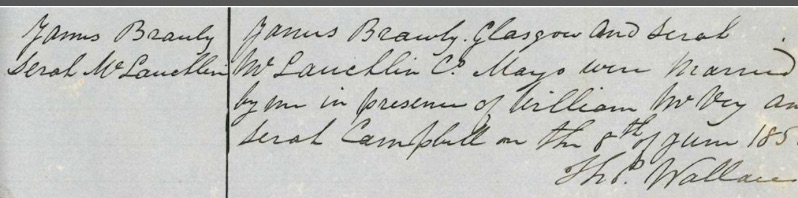 James Brawly
Serah McLauchlin
James Brawly. Glasgow and Serah
McLauchlin Co. Mayo were Married
by me in presence of William McVey an
Serah Campbell on the 8th of June 185
Thos. Wallace